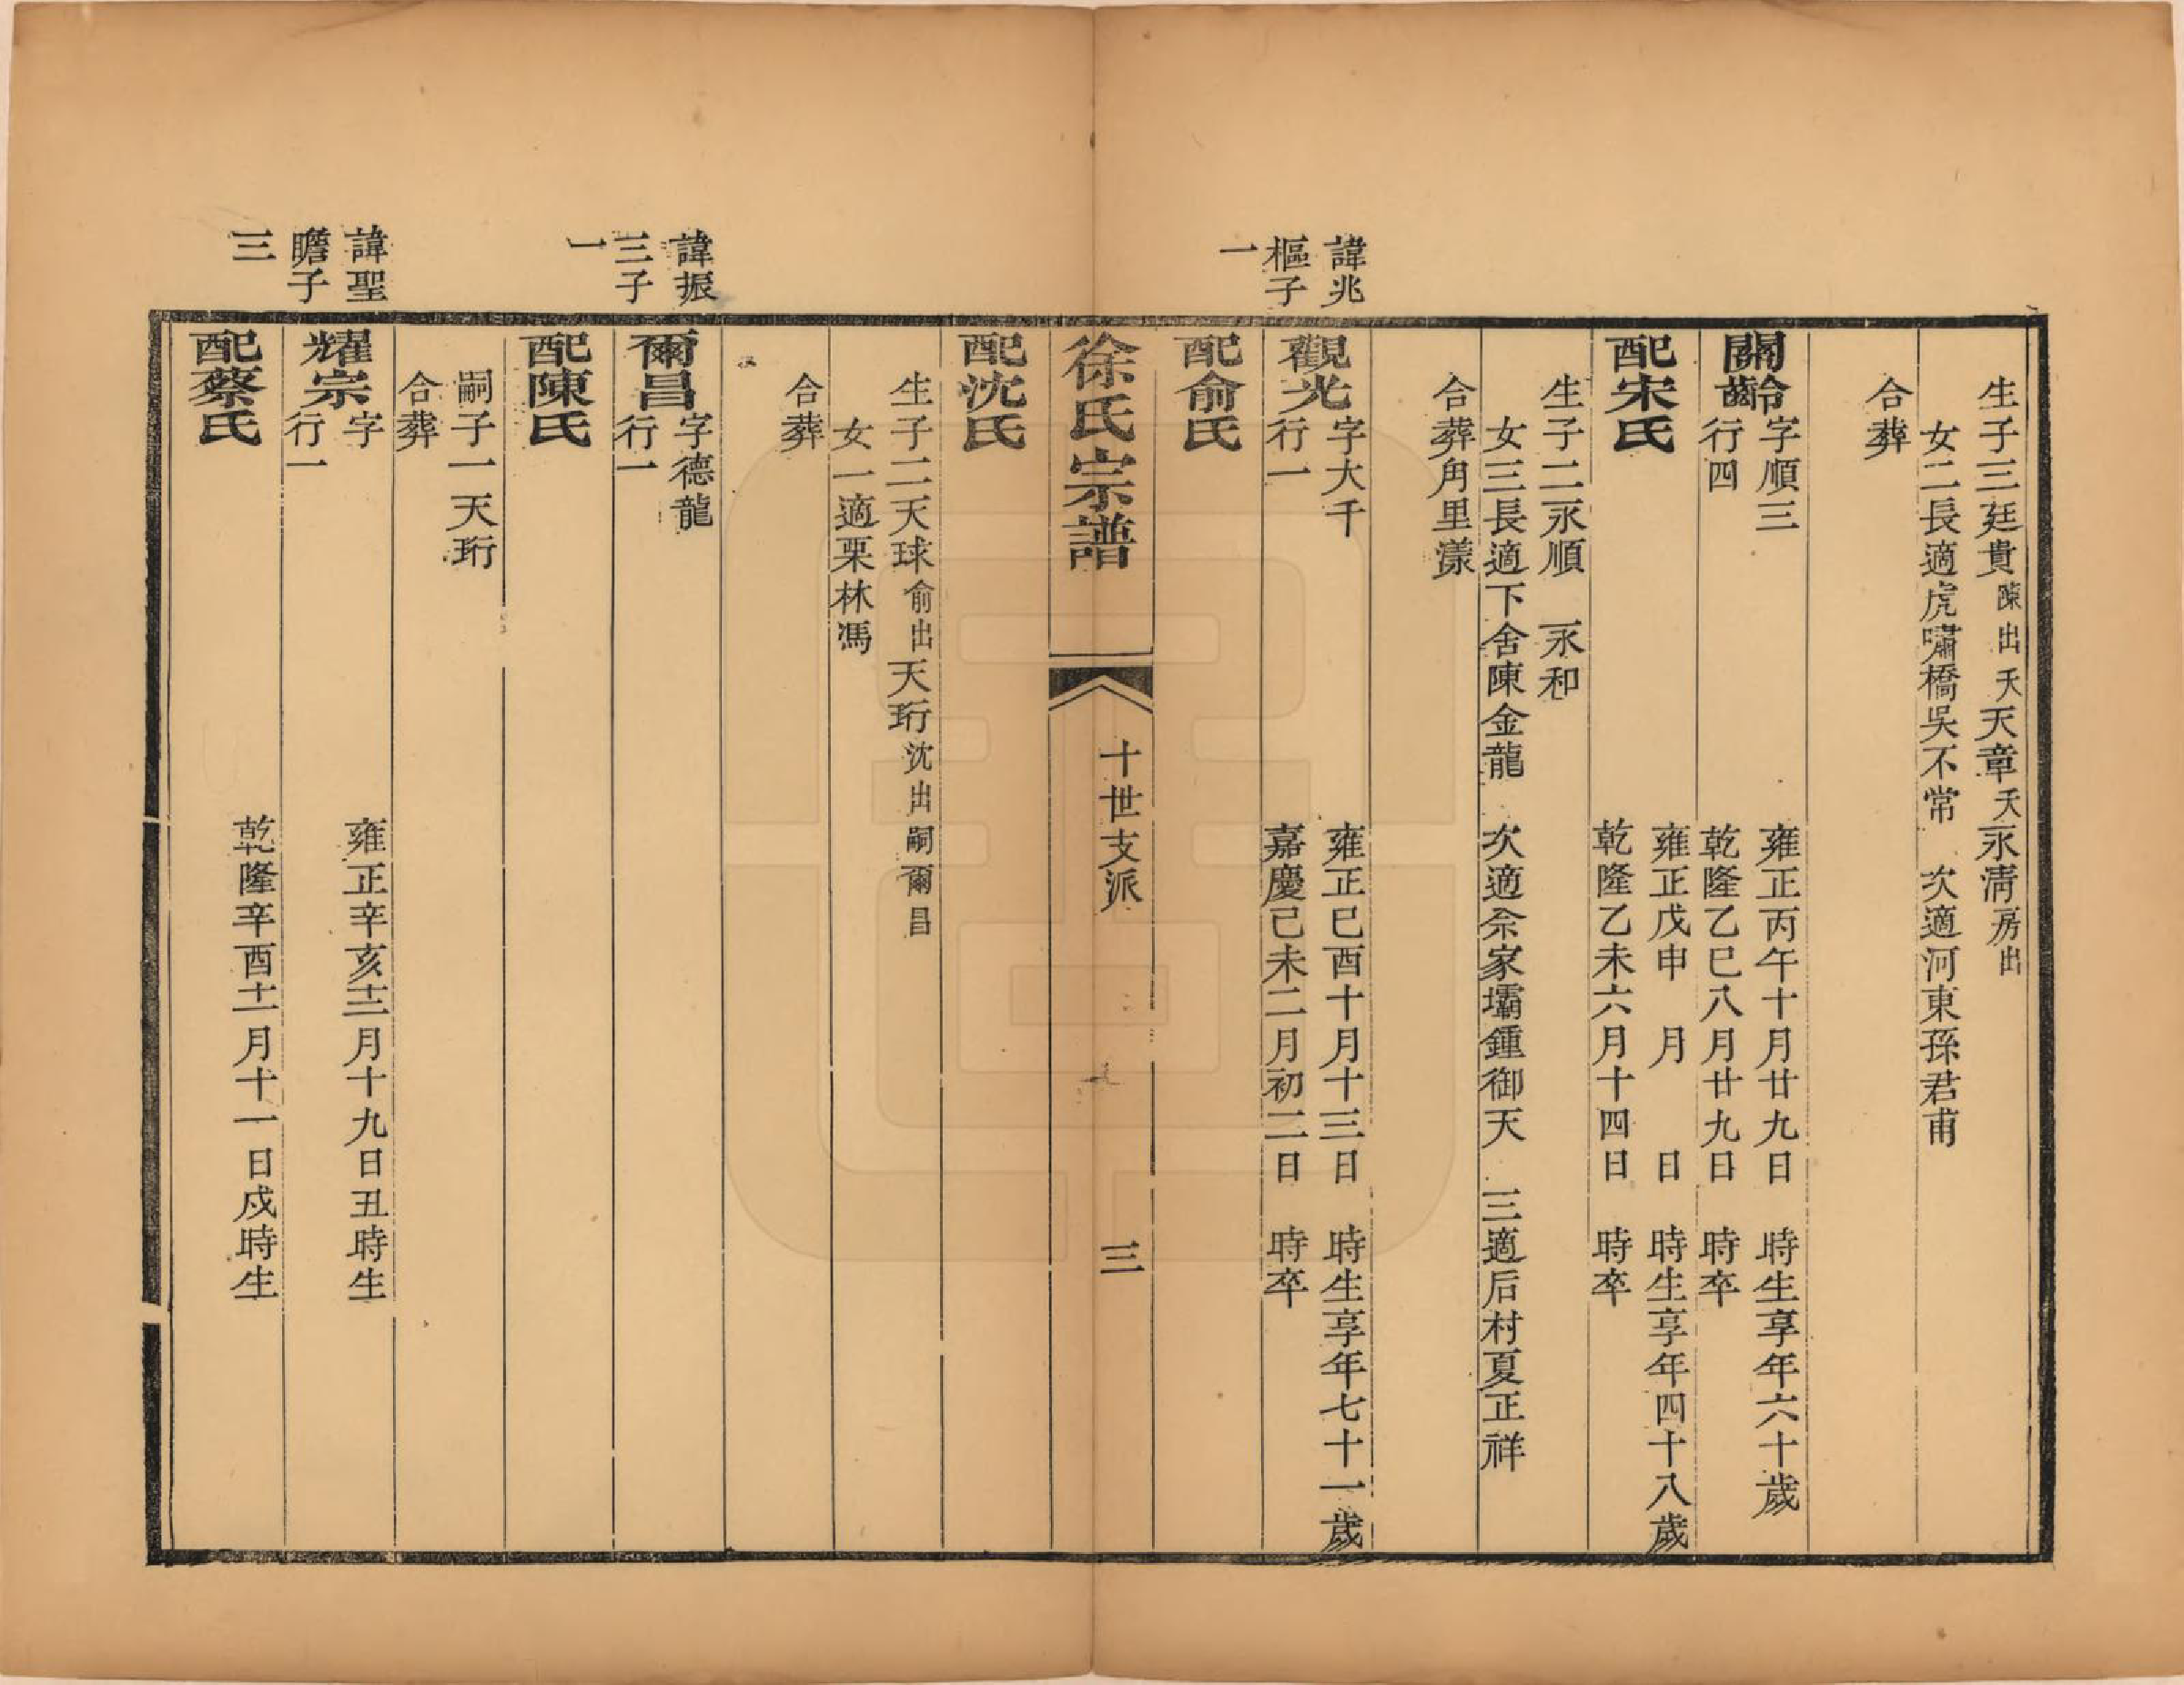 生子三廷貴陳出夭天章夭永清房出
女二長適虎嘯橋吳不常　次適河東孫君甫
合葬
關齡字順三　雍正丙午十月廿九日　時生享年六十歲
行四　乾隆乙巳八月廿九日　時卒
配宋氏　雍正戊申　月　日　時生享年四十八歲
乾隆乙未六月十四日　時卒
生子二永順　永和
女三長適下舍陳金龍　次適佘家壩鍾御天　三適后村夏正祥
合葬角里漾
諱兆
樞子
一
觀光字大千　雍正己酉十月十三日　時生享年七十一歲
行一　嘉慶己未二月初二日　時卒
配俞氏
徐氏宗譜　十世支派　三
配沈氏
生子二天球俞出天珩沈出嗣爾昌
女一適栗林馮
合葬
諱振
三子
一
爾昌字德龍
行一
配陳氏
嗣子一天珩
合葬
諱聖
瞻子
三
耀宗字　雍正辛亥十二月十九日丑時生
行一
配蔡氏　乾隆辛酉十一月十一日戌時生